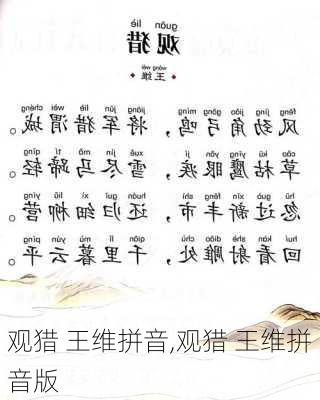 guān liè
观猎
wáng wéi
王维
fēng jìng jiǎo gōng míng jiāng jūn liè wèi chéng
风劲角弓鸣，将军猎渭城。
cǎo kū yīng yǎn jí xuě jìn mǎ tí qīng
草枯鹰眼疾，雪尽马蹄轻。
hū guò xīn fēng shì huán guī xì liǔ yíng
忽过新丰市，还归细柳营。
huí kàn shè diāo chù qiān lǐ mù yún píng
回看射雕处，千里暮云平。
观猎 王维拼音,观猎 王维拼
音版